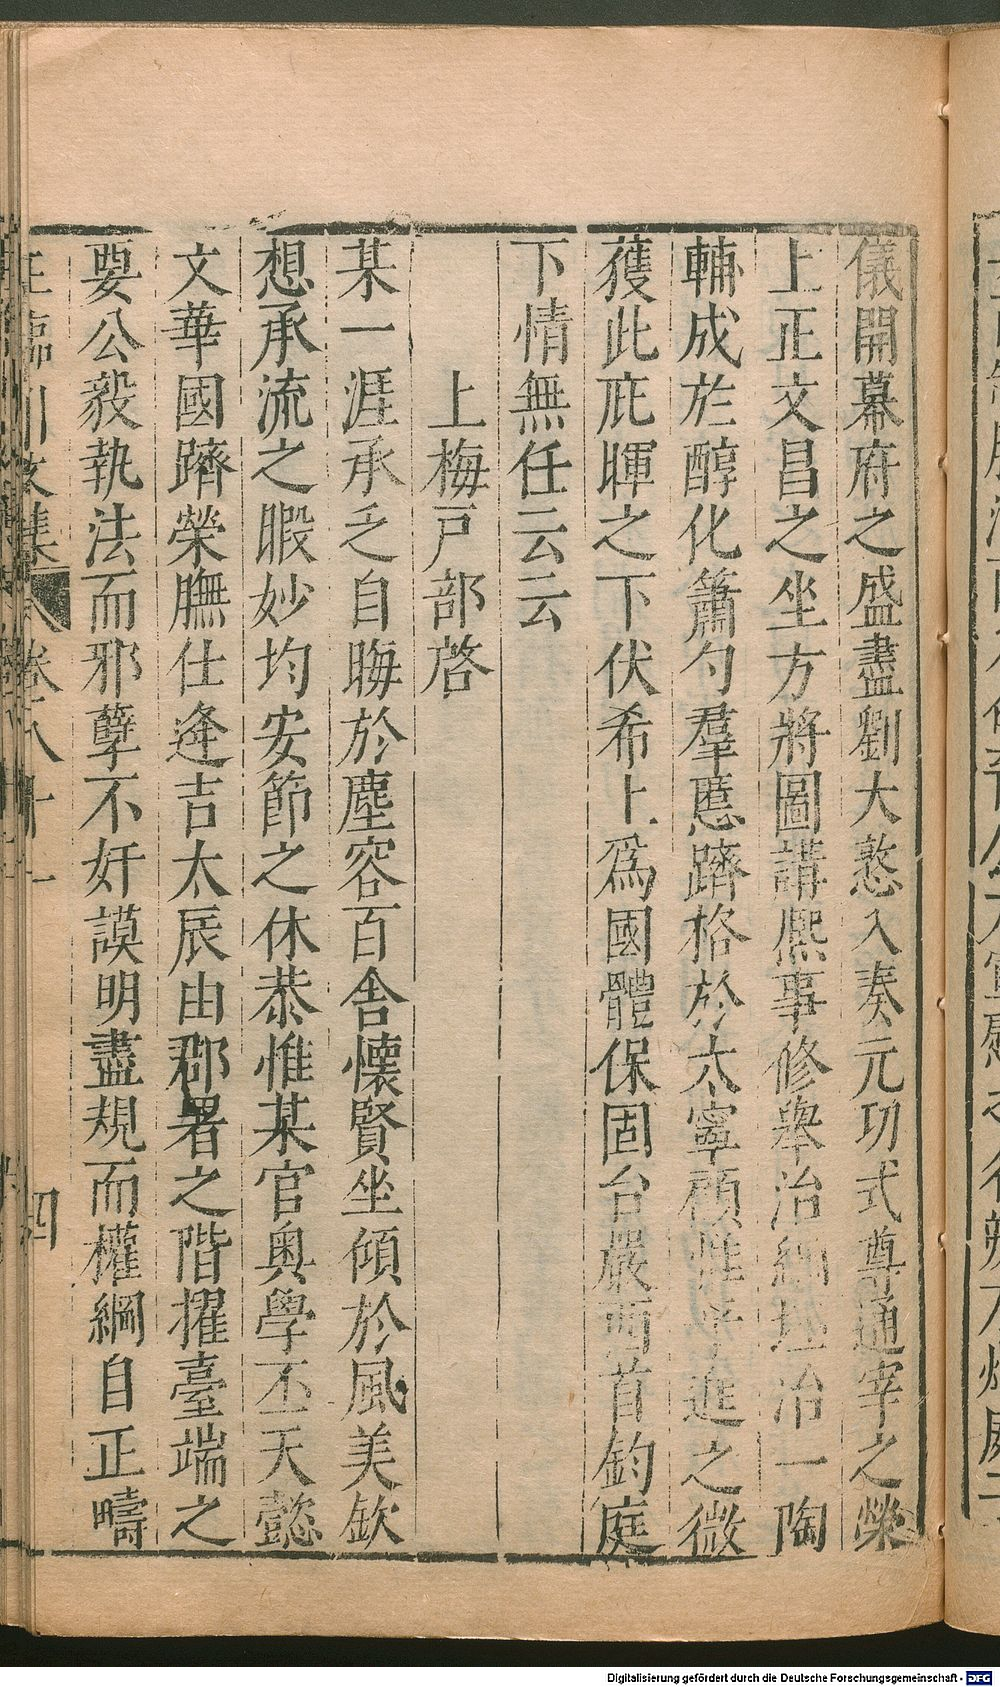 儀開幕府之盛盡劉大憝入奏元功式尊通宰之榮
上正文昌之坐方將圖講熙事修舉治綱埏治一陶
輔成於醇化簫勺羣慝躋格於太寧顧惟平進之微
獲此庇暉之下伏希上爲國體保固台嚴西首鈞庭
下情無任云云
上梅戸部啓
某一涯承乏自晦於塵容百舍懷賢坐傾於風美欽
想承流之暇妙均安節之休恭惟某官奥學丕天懿
文華國躋榮膴仕逄吉太辰由郡署之階擢臺端之
要公毅執法而邪孽不奸謨明盡規而權綱自正疇
王臨川文集 卷八十一 四
Digitalisierung gefördert durch die Deutsche Forschungsgemeinschaft - DFG